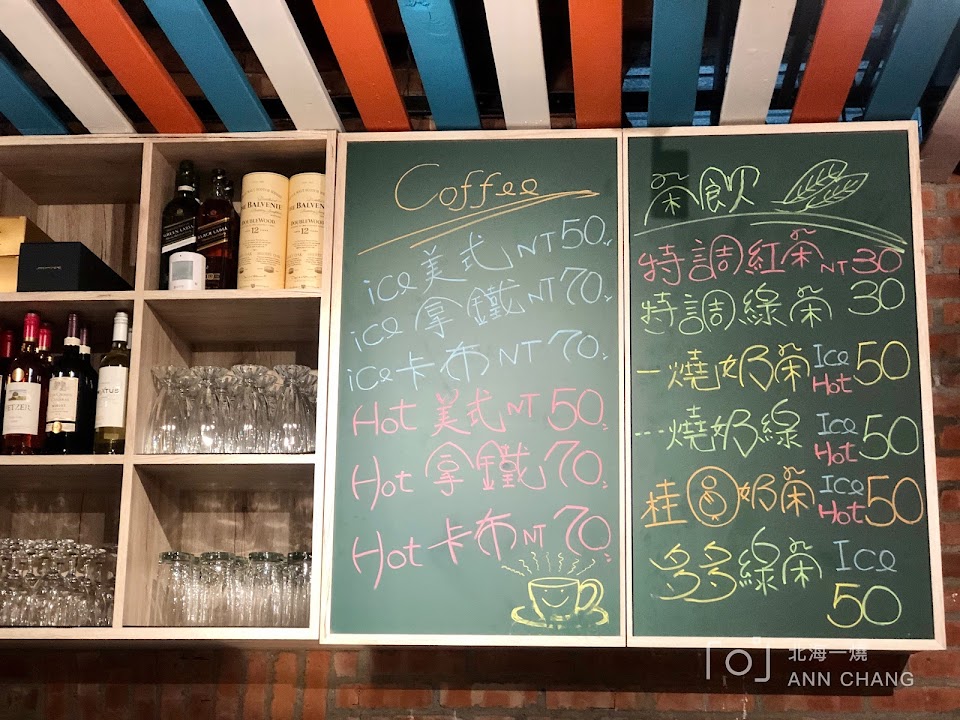 Coffee
ice 美式 NT 50.
ice 拿鐵 NT 70.
ice 卡布 NT 70.
Hot 美式 NT 50.
Hot 拿鐵 70.
Hot 卡布 NT 70.
茶飲
特調紅茶 NT 30
特調綠茶 30
一燒奶茶 Ice Hot 50
一燒奶綠 Ice Hot 50
桂圓奶茶 Ice Hot 50
多多綠茶 Ice 50
THE BALVENIE
DOUBLEWOOD
12
BALVENIE
DOUBLEWOOD
12
GREEN LABEL
BLACK LABEL
FETZER
北海一燒
ANN CHANG